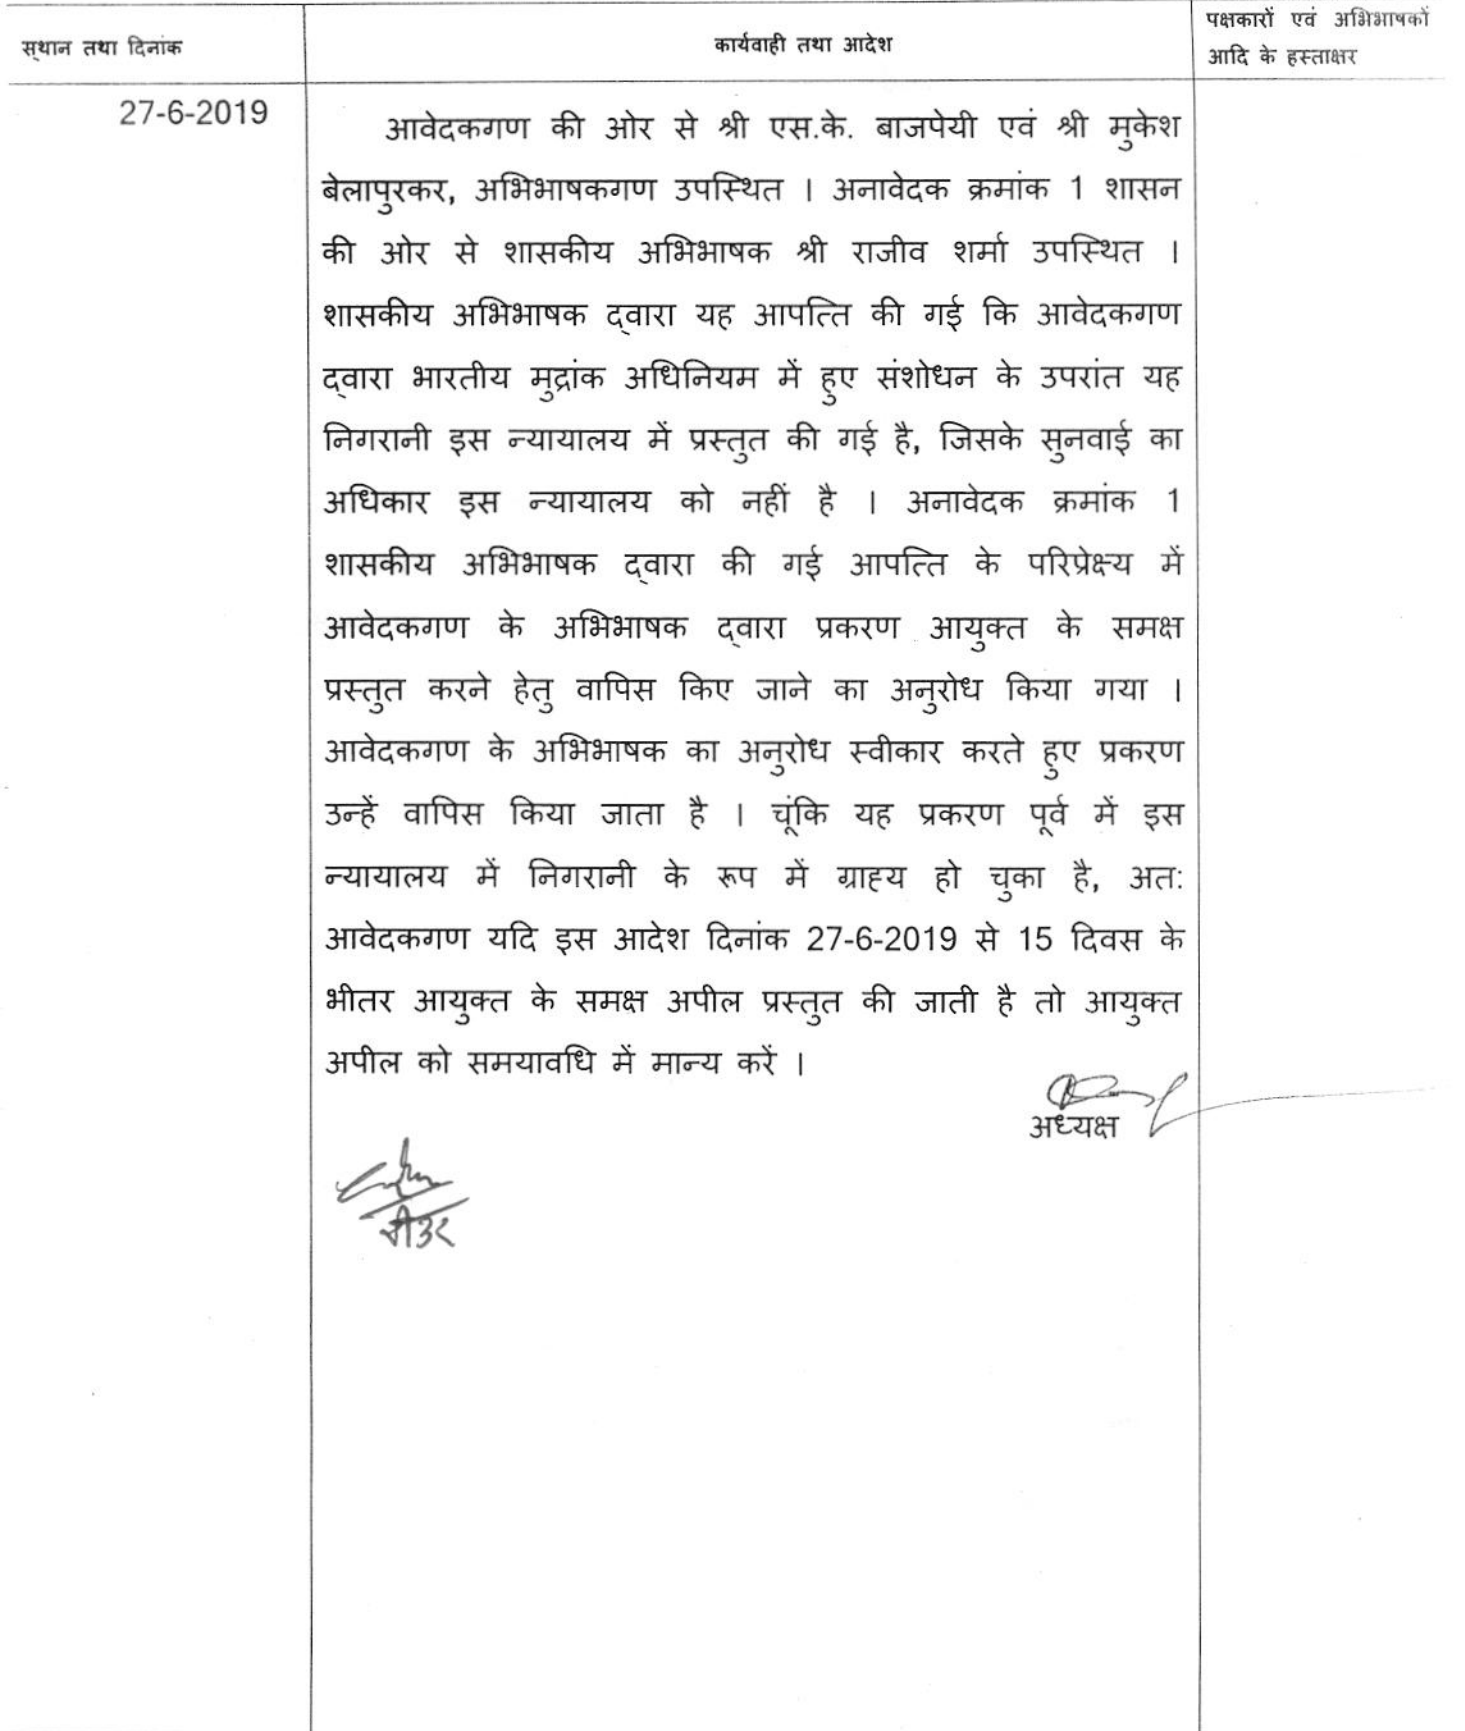 स्थान तथा दिनांक
कार्यवाही तथा आदेश
पक्षकारों एवं अभिभाषकों
आदि के हस्ताक्षर
27-6-2019
आवेदकगण की ओर से श्री एस.के. बाजपेयी एवं श्री मुकेश
बेलापुरकर, अभिभाषकगण उपस्थित । अनावेदक क्रमांक 1 शासन
की ओर से शासकीय अभिभाषक श्री राजीव शर्मा उपस्थित ।
शासकीय अभिभाषक द्वारा यह आपत्ति की गई कि आवेदकगण
द्वारा भारतीय मुद्रांक अधिनियम में हुए संशोधन के उपरांत यह
निगरानी इस न्यायालय में प्रस्तुत की गई है, जिसके सुनवाई का
अधिकार इस न्यायालय को नहीं है । अनावेदक क्रमांक 1
शासकीय अभिभाषक द्वारा की गई आपत्ति के परिप्रेक्ष्य में
आवेदकगण के अभिभाषक द्वारा प्रकरण आयुक्त के समक्ष
प्रस्तुत करने हेतु वापिस किए जाने का अनुरोध किया गया ।
आवेदकगण के अभिभाषक का अनुरोध स्वीकार करते हुए प्रकरण
उन्हें वापिस किया जाता है । चूंकि यह प्रकरण पूर्व में इस
न्यायालय में निगरानी के रूप में ग्राह्य हो चुका है, अत:
आवेदकगण यदि इस आदेश दिनांक 27-6-2019 से 15 दिवस के
भीतर आयुक्त के समक्ष अपील प्रस्तुत की जाती है तो आयुक्त
अपील को समयावधि में मान्य करें ।
अध्यक्ष